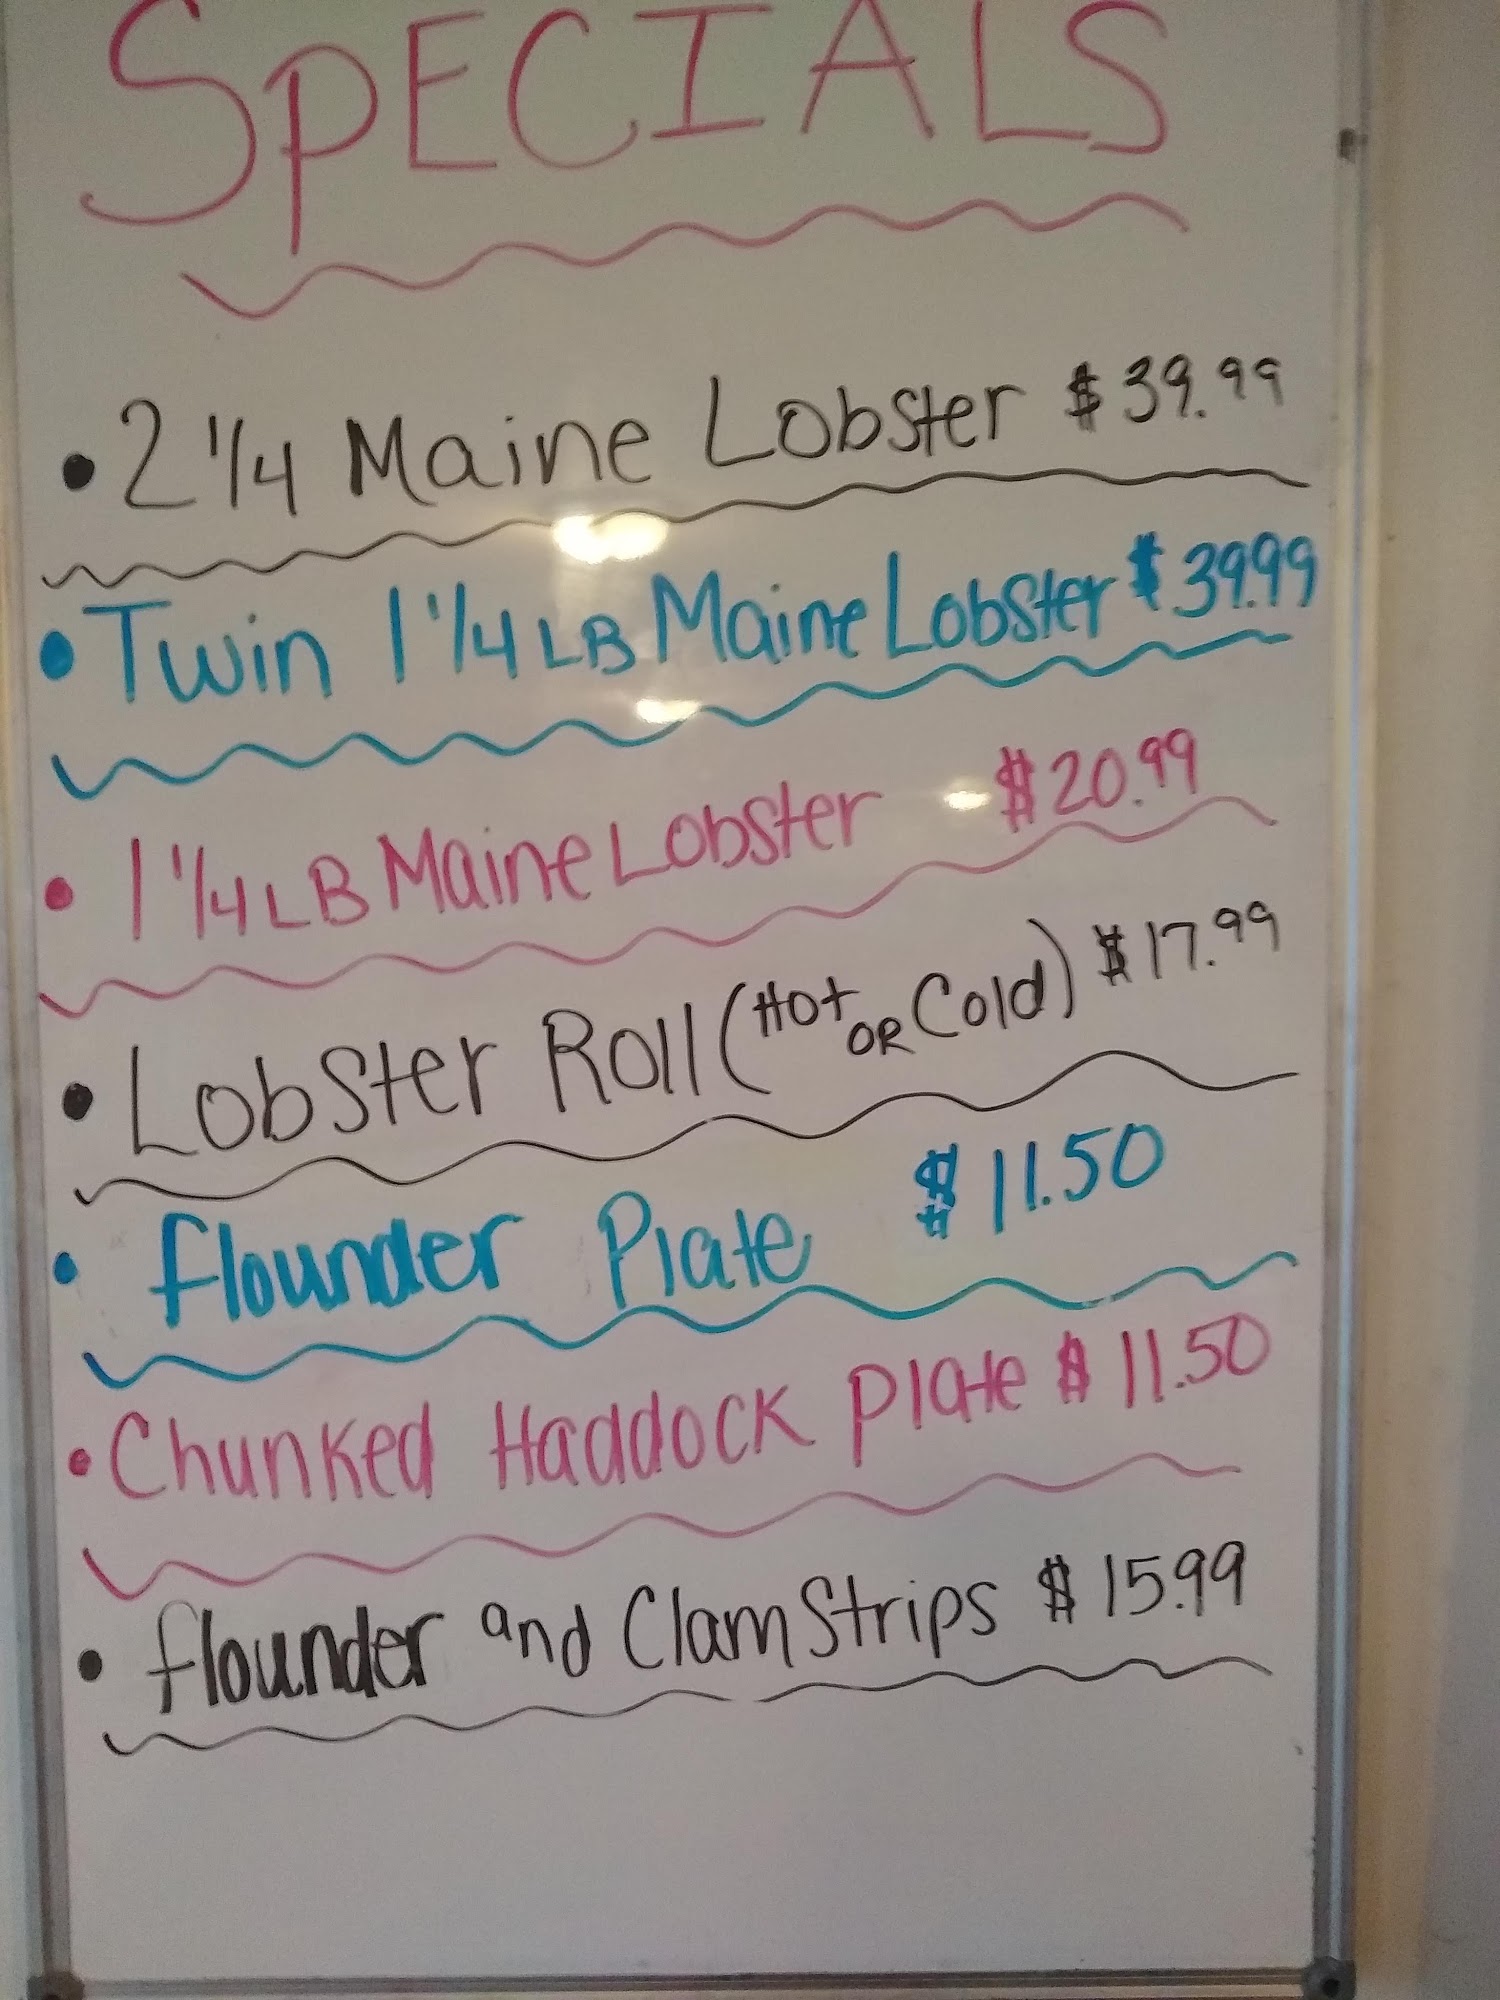 SPECIALS
• 2 1/4 Maine Lobster $39.99
• Twin 1 1/4 LB Maine Lobster $39.99
• 1 1/4 LB Maine Lobster $20.99
• Lobster Roll (Hot OR Cold) $17.99
• flounder Plate $11.50
• Chunked Haddock Plate $11.50
• flounder and Clam Strips $15.99